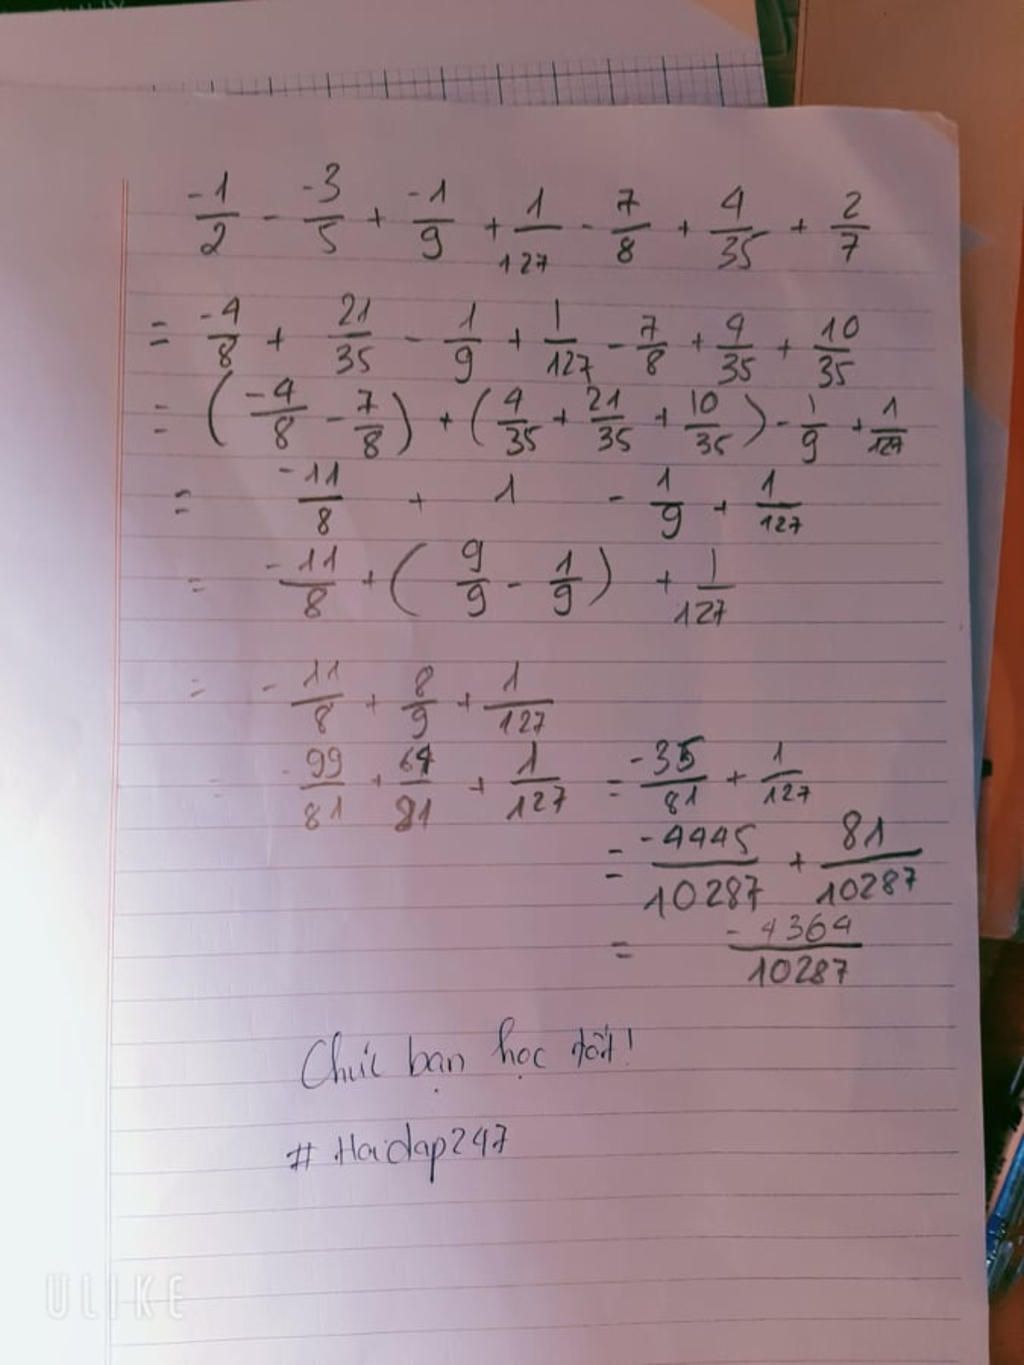 -1/2 - -3/5 + -1/9 + 1/127 - 7/8 + 4/35 + 2/7
= -4/8 + 21/35 - 1/9 + 1/127 - 7/8 + 4/35 + 10/35
= (-4/8 - 7/8) + (4/35 + 21/35 + 10/35) - 1/9 + 1/127
= -11/8 + 1 - 1/9 + 1/127
= -11/8 + (9/9 - 1/9) + 1/127
= -11/8 + 8/9 + 1/127
= -99/81 + 64/81 + 1/127 = -35/81 + 1/127
= -4445/10287 + 81/10287
= -4364/10287
Chúc bạn học tốt!
# Hoidap247
ULIKE